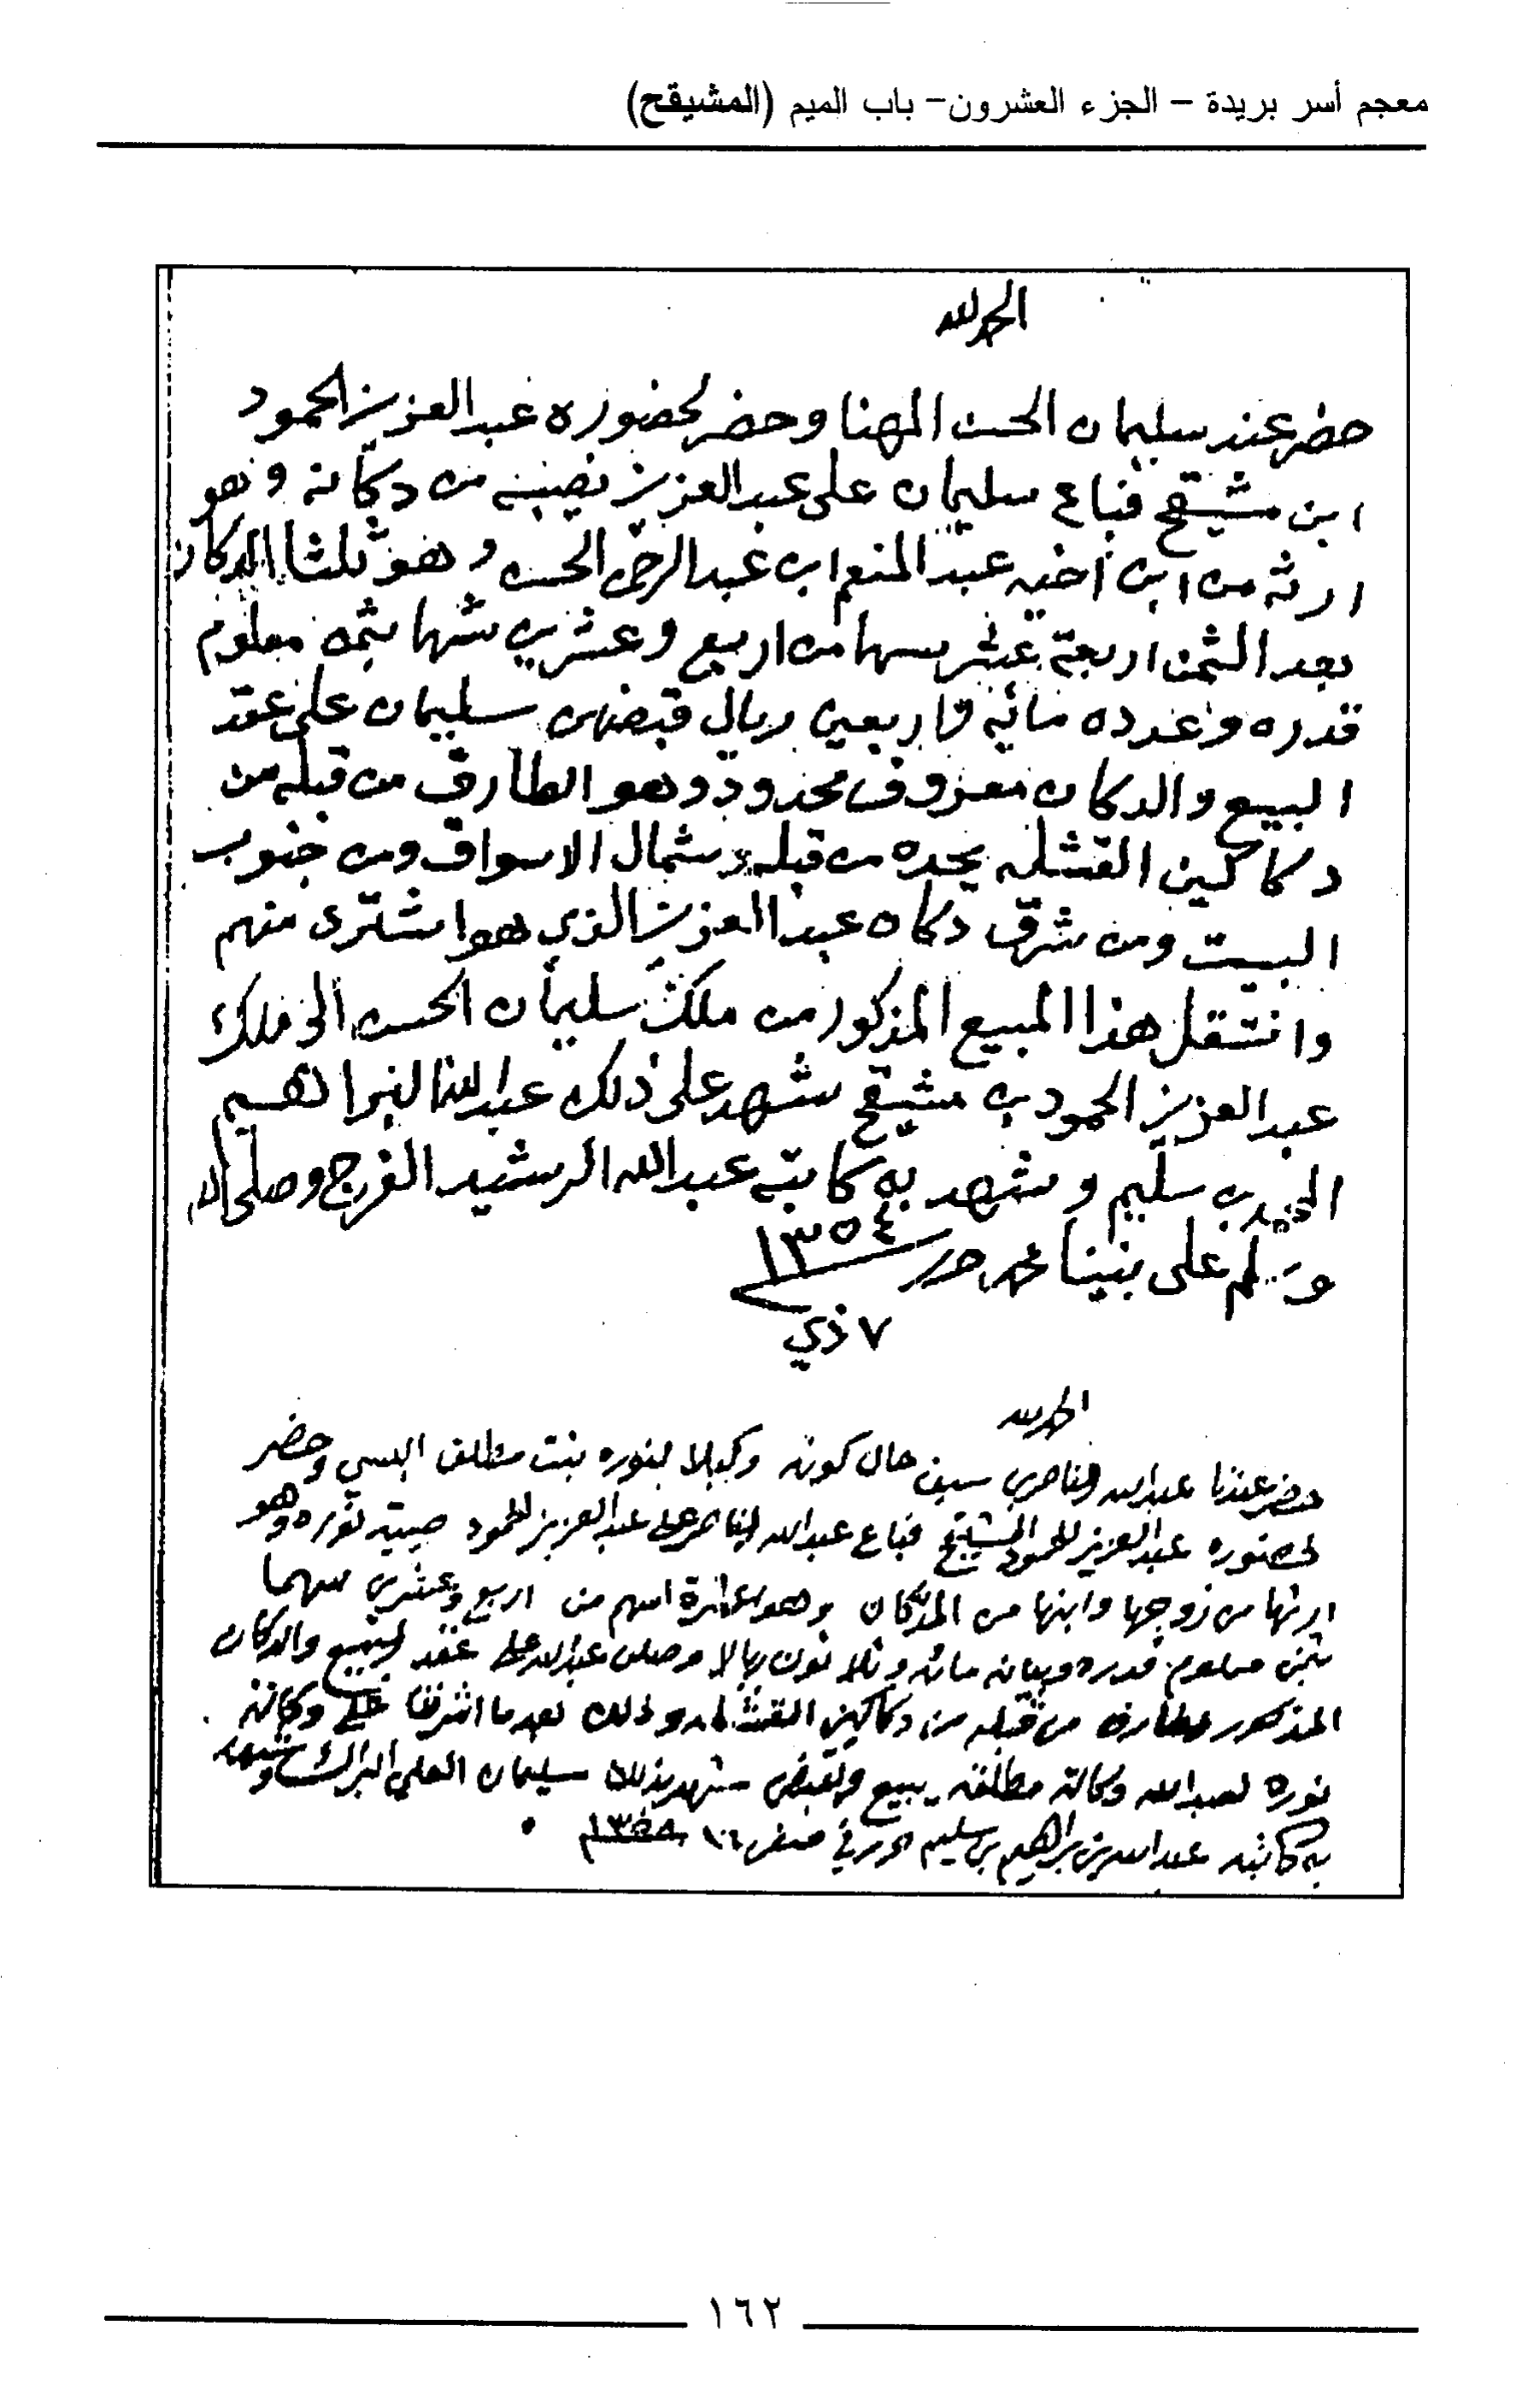 معجم أسر بريدة – الجزء العشرون– باب الميم (المشيقح)
الحمد لله
حضر عند سليمان الحسن المهنا وحضر لحضوره عبدالعزيز الحمود
ابن مشيقح فباع سليمان على عبدالعزيز نصيبه من دكانه وهو
ارثه من ابن اخيه عبدالمنعم ابن عبدالرحمن الحسن وهو ثلثا الدكان
بعد الثمن اربعة عشر سهما من اربع وعشرين سهما بثمن معلوم
قدره وعدده مائة واربعين ريال قبضهن سليمان على عقد
البيع والدكان معروف محدود وهو الطارق من قبله من
دكاكين القشله يحده من قبله وشمال الاسواق ومن جنوب
البيت ومن شرق دكان عبدالعزيز الذي هو اشترى منهم
وانتقل هذا المبيع المذكور من ملك سليمان الحسن الى ملك
عبدالعزيز الحمود بن مشيقح شهد على ذلك عبدالله البراهيم
بن سليم وشهد به كاتبه عبدالله الرشيد الفرج وصلى الله
وسلم على نبينا محمد حرر ١٣٥٤
٧ ذي
الحمد لله
حضر عندنا عبدالله الناصر بن سيف حال كونه وكيلا لنوره بنت مطلق وحضر
لحضوره عبدالعزيز الحمود المشيقح فباع عبدالله الناصر على عبدالعزيز الحمود صيبة نوره وهو
ارثها من زوجها وابنها من الدكان وهو عشرة اسهم من اربع وعشرين سهما
بثمن معلوم قدره وبيانه مائة وثلاثون ريالا وصلن عبدالله على عقد البيع والدكان
المذكور الطارف من قبله من دكاكين القشله وذلك بعد ما اشرفنا على وكالة
نوره لعبدالله وكالة مطلقه يبيع ويقبض شهد بذلك سليمان العلي البراك وشهد
به كاتبه عبدالله بن ابراهيم بن سليم حرر في صفر ١٦
١٦٢